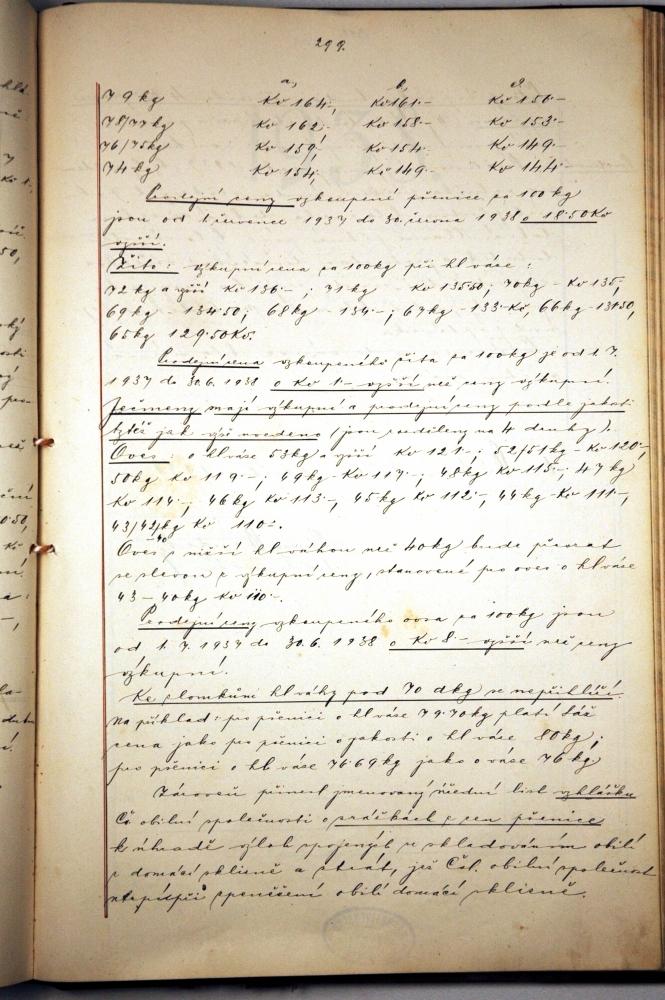 299.
a, b, c,
79 kg Kč 164.- Kč 161.- Kč 156.-
78/77 kg Kč 162.- Kč 158.- Kč 153.-
76/75 kg Kč 159.- Kč 154.- Kč 149.-
74 kg Kč 154.- Kč 149.- Kč 144.-
Prodejní ceny vykoupené pšenice za 100 kg
jsou od 1. července 1937 do 30. června 1938 o 18.50 Kč
vyšší.
Žito: výkupní cena za 100 kg při hl váze:
72 kg a výší Kč 136.-; 71 kg - Kč 135.50; 70 kg - Kč 135,
69 kg - 134.50; 68 kg - 134.-; 67 kg - 133 Kč, 66 kg - 131.50,
65 kg 129.50 Kč.
Prodejní cena vykoupeného žita za 100 kg je od 1. 7.
1937 do 30. 6. 1938 o Kč 1.- vyšší než ceny výkupní.
Ječmeny mají výkupní a prodejní ceny podle jakosti
též jak výše uvedeno (jsou rozděleny na 4 druhy).
Oves: o hl váze 53 kg a výší Kč 121.-; 52/51 kg - Kč 120.-,
50 kg Kč 119.-; 49 kg - Kč 117.-; 48 kg Kč 115.-; 47 kg
Kč 114.-, 46 kg Kč 113.-, 45 kg Kč 112.-, 44 kg - Kč 111.-,
43/42/kg Kč 110.-.
Oves s nižší hl váhou než 40 kg bude převzat
se slevou z výkupní ceny, stanovené pro oves o hl váze
43 - 40 kg Kč 110.-.
Prodejní ceny vykoupeného ovsa za 100 kg jsou
od 1. 7. 1937 do 30. 6. 1938 o Kč 8.- vyšší než ceny
výkupní.
Ke zlomkům hl váhy pod 70 dkg se nepřihlíží.
Na příklad: pro pšenici o hl váze 79.70 kg platí táž
cena jako pro pšenici o jakosti o hl váze 80 kg;
pro pšenici o hl váze 76.69 kg jako o váze 76 kg
Zároveň přinesl jmenovaný úřední list vyhlášku
Čs obilní společnosti o srážkách z cen pšenice
k úhradě výloh spojených se skladováním obilí
z domácí sklizně a ztrát, jež Čsl. obilní společnost
při zpeněžení obilí domácí sklizně.